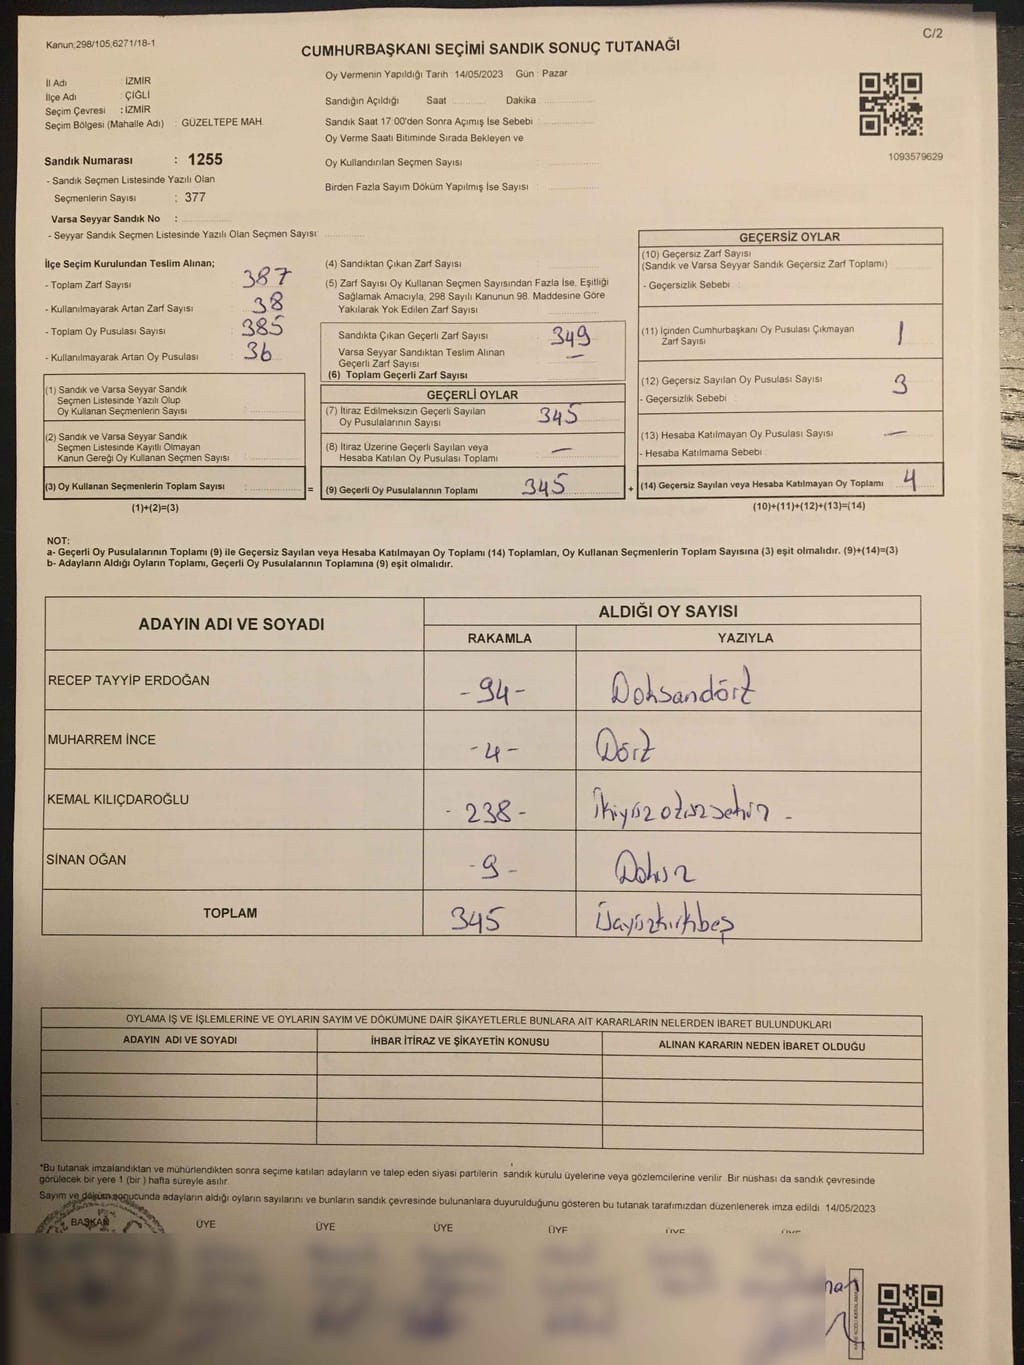 Kanun;298/105,6271/18-1
C/2
CUMHURBAŞKANI SEÇİMİ SANDIK SONUÇ TUTANAĞI
İl Adı : İZMİR
İlçe Adı : ÇİĞLİ
Seçim Çevresi : İZMİR
Seçim Bölgesi (Mahalle Adı) : GÜZELTEPE MAH.
Sandık Numarası : 1255
- Sandık Seçmen Listesinde Yazılı Olan
Seçmenlerin Sayısı : 377
Varsa Seyyar Sandık No :
- Seyyar Sandık Seçmen Listesinde Yazılı Olan Seçmen Sayısı:
Oy Vermenin Yapıldığı Tarih : 14/05/2023 Gün : Pazar
Sandığın Açıldığı Saat Dakika
Sandık Saat 17:00'den Sonra Açımış İse Sebebi :
Oy Verme Saati Bitiminde Sırada Bekleyen ve
Oy Kullandırılan Seçmen Sayısı :
Birden Fazla Sayım Döküm Yapılmış İse Sayısı :
1093579629
İlçe Seçim Kurulundan Teslim Alınan;
- Toplam Zarf Sayısı : 387
- Kullanılmayarak Artan Zarf Sayısı : 38
- Toplam Oy Pusulası Sayısı : 385
- Kullanılmayarak Artan Oy Pusulası : 36
(1) Sandık ve Varsa Seyyar Sandık
Seçmen Listesinde Yazılı Olup
Oy Kullanan Seçmenlerin Sayısı :
(2) Sandık ve Varsa Seyyar Sandık
Seçmen Listesinde Kayıtlı Olmayan
Kanun Gereği Oy Kullanan Seçmen Sayısı :
(3) Oy Kullanan Seçmenlerin Toplam Sayısı :
(1)+(2)=(3)
=
(4) Sandıktan Çıkan Zarf Sayısı :
(5) Zarf Sayısı Oy Kullanan Seçmen Sayısından Fazla İse, Eşitliği
Sağlamak Amacıyla, 298 Sayılı Kanunun 98. Maddesine Göre
Yakılarak Yok Edilen Zarf Sayısı :
Sandıkta Çıkan Geçerli Zarf Sayısı : 349
Varsa Seyyar Sandıktan Teslim Alınan
Geçerli Zarf Sayısı : —
(6) Toplam Geçerli Zarf Sayısı :
GEÇERLİ OYLAR
(7) İtiraz Edilmeksizin Geçerli Sayılan
Oy Pusulalarının Sayısı : 345
(8) İtiraz Üzerine Geçerli Sayılan veya
Hesaba Katılan Oy Pusulası Toplamı : —
(9) Geçerli Oy Pusulalarının Toplamı : 345
+
GEÇERSİZ OYLAR
(10) Geçersiz Zarf Sayısı
(Sandık ve Varsa Seyyar Sandık Geçersiz Zarf Toplamı) :
- Geçersizlik Sebebi :
(11) İçinden Cumhurbaşkanı Oy Pusulası Çıkmayan
Zarf Sayısı : 1
(12) Geçersiz Sayılan Oy Pusulası Sayısı : 3
- Geçersizlik Sebebi :
(13) Hesaba Katılmayan Oy Pusulası Sayısı : —
- Hesaba Katılmama Sebebi :
(14) Geçersiz Sayılan veya Hesaba Katılmayan Oy Toplamı : 4
(10)+(11)+(12)+(13)=(14)
NOT:
a- Geçerli Oy Pusulalarının Toplamı (9) ile Geçersiz Sayılan veya Hesaba Katılmayan Oy Toplamı (14) Toplamları, Oy Kullanan Seçmenlerin Toplam Sayısına (3) eşit olmalıdır. (9)+(14)=(3)
b- Adayların Aldığı Oyların Toplamı, Geçerli Oy Pusulalarının Toplamına (9) eşit olmalıdır.
ADAYIN ADI VE SOYADI ALDIĞI OY SAYISI
RAKAMLA YAZIYLA
RECEP TAYYİP ERDOĞAN -94- Doksandört
MUHARREM İNCE -4- Dört
KEMAL KILIÇDAROĞLU -238- İkiyüzotuzsekiz -
SİNAN OĞAN -9- Dokuz
TOPLAM 345 Üçyüzkırkbeş
OYLAMA İŞ VE İŞLEMLERİNE VE OYLARIN SAYIM VE DÖKÜMÜNE DAİR ŞİKAYETLERLE BUNLARA AİT KARARLARIN NELERDEN İBARET BULUNDUKLARI
ADAYIN ADI VE SOYADI İHBAR İTİRAZ VE ŞİKAYETİN KONUSU ALINAN KARARIN NEDEN İBARET OLDUĞU
*Bu tutanak imzalandıktan ve mühürlendikten sonra seçime katılan adayların ve talep eden siyasi partilerin sandık kurulu üyelerine veya gözlemcilerine verilir. Bir nüshası da sandık çevresinde
görülecek bir yere 1 (bir ) hafta süreyle asılır.
Sayım ve döküm sonucunda adayların aldığı oyların sayılarını ve bunların sandık çevresinde bulunanlara duyurulduğunu gösteren bu tutanak tarafımızdan düzenlenerek imza edildi. 14/05/2023
BAŞKAN ÜYE ÜYE ÜYE ÜYE ÜYE ÜYE